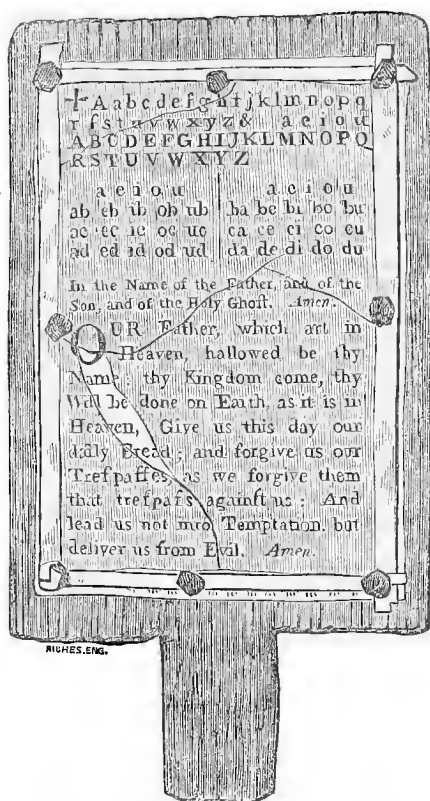 +Aabcdefghijklmnopq
rſstuvwxyz& aeiou
ABCDEFGHIJKLMNOPQ
RSTUVWXYZ
a e i o u a e i o u
ab eb ib ob ub ba be bi bo bu
ac ec ic oc uc ca ce ci co cu
ad ed id od ud da de di do du
In the Name of the Father, and of the
Son, and of the Holy Ghoſt. Amen.
OUR Father, which art in
Heaven, hallowed be thy
Name; thy Kingdom come, thy
Will be done on Earth, as it is in
Heaven, Give us this day our
daily Bread; and forgive us our
Treſpaſſes, as we forgive them
that treſpaſs againſt us: And
lead us not into Temptation, but
deliver us from Evil. Amen.
RICHES.ENG.